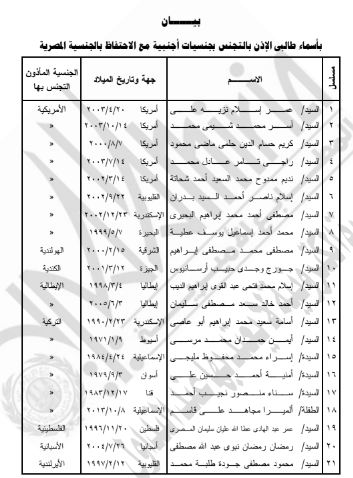 بيـــان
بأسماء طالبى الإذن بالتجنس بجنسيات أجنبية مع الاحتفاظ بالجنسية المصرية
مسلسل الاســـم جهة وتاريخ الميلاد الجنسية المأذون التجنس بها
١ السيد/ عمر إسلام نزيه على أمريكا ٢٠٠٣/٤/٢٠ الأمريكية
٢ السيد/ آسر محمد شيمى محمد أمريكا ٢٠٠٣/١٠/١٤ »
٣ السيد/ كريم حسام الدين حلمى ماضى محمود أمريكا ٢٠٠٠/٨/٧ »
٤ السيد/ راجى تامر عادل محمد أمريكا ٢٠٠٣/٧/١٤ »
٥ السيد/ نديم ممدوح محمد السعيد أحمد شحاتة أمريكا ٢٠٠٢/٣/١٤ »
٦ السيد/ إسلام ناصر أحمد السيد بدران القليوبية ٢٠٠٢/٩/٢٢ »
٧ السيد/ مصطفى أحمد محمد إبراهيم البحيرى الإسكندرية ٢٠٠٢/١٢/٢٣ »
٨ السيد/ محمد أحمد إسماعيل يوسف عطية البحيرة ١٩٩٩/٥/٧ »
٩ السيد/ مصطفى محمد مصطفى إبراهيم الشرقية ٢٠٠٠/٢/١٥ الهولندية
١٠ السيد/ جورج وجدى حبيب أرسانيوس الجيزة ٢٠٠١/٣/١٢ الكندية
١١ السيد/ إسلام محمد فتحى عبد القوى إبراهيم الديب إيطاليا ١٩٩٨/٣/٤ الإيطالية
١٢ السيد/ أحمد خالد سعد مصطفى سليمان إيطاليا ٢٠٠٥/٦/٣ »
١٣ السيد/ أسامة سعيد محمد إبراهيم أبو عاصى الإسكندرية ١٩٩٠/٢/٢٣ التركية
١٤ السيد/ أيمن حمدان محمد مرسى أسيوط ١٩٧١/١/٩ »
١٥ السيدة/ إسراء محمد محفوظ مليجى الإسماعيلية ١٩٨٤/٤/٢٤ »
١٦ السيدة/ أمنية أحمد حسين على أسوان ١٩٧٩/٩/٣ »
١٧ السيدة/ سناء منصور نجيب أحمد قنا ١٩٨٣/١٢/١٧ »
١٨ الطفلة/ ألميرا مجاهد على قاسم الإسماعيلية ٢٠١٣/١٠/٨ »
١٩ السيد/ عمر عبد الهادى عطا الله عليان سليمان المصرى فلسطين ١٩٩٦/١١/٢٠ الفلسطينية
٢٠ السيد/ رمضان رمضان نبوى عبد الله مصطفى أسبانيا ٢٠٠٤/٧/٢٦ الأسبانية
٢١ السيد/ محمود مصطفى جودة طلبة محمد القليوبية ١٩٩٧/٢/١٢ الأيرلندية